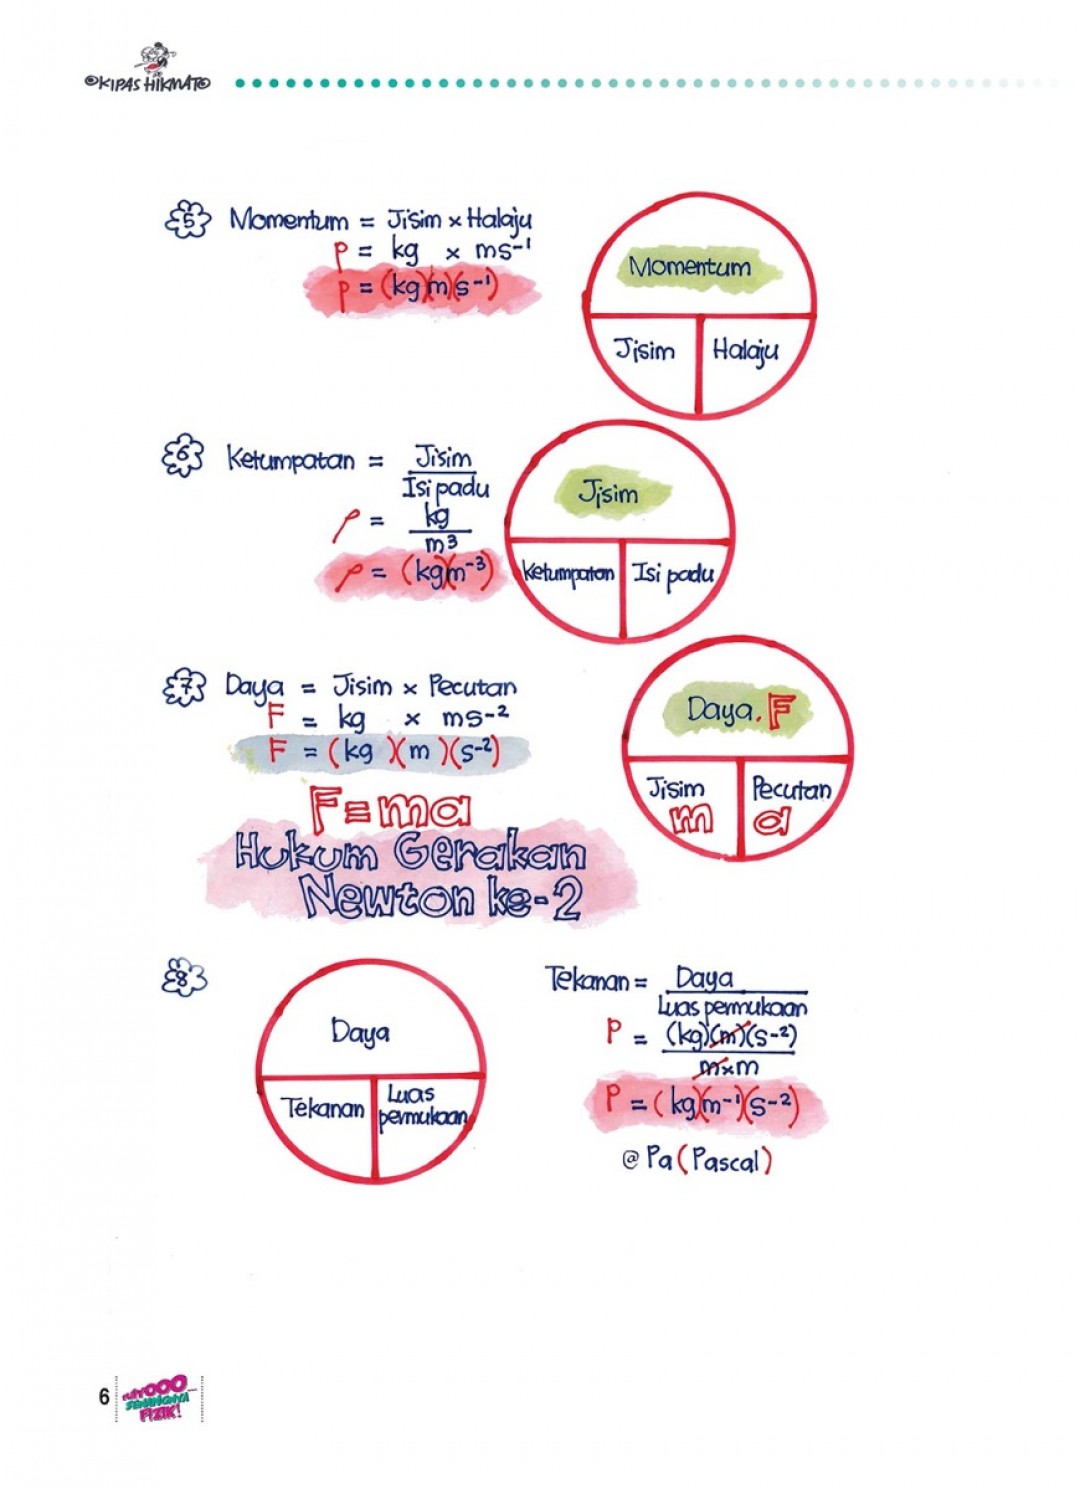 ©KIPAS HIKMAT®
5 Momentum = Jisim × Halaju
p = kg × ms⁻¹
p = (kg)(m)(s⁻¹)
Momentum
Jisim Halaju
6 Ketumpatan = Jisim
Isi padu
ρ = kg
m³
ρ = (kg)(m⁻³)
Jisim
Ketumpatan Isi padu
7 Daya = Jisim × Pecutan
F = kg × ms⁻²
F = (kg)(m)(s⁻²)
F=ma
Hukum Gerakan
Newton ke-2
Daya, F
Jisim Pecutan
m a
8
Daya
Tekanan Luas
permukaan
Tekanan = Daya
Luas permukaan
P = (kg)(m)(s⁻²)
m×m
P = (kg)(m⁻¹)(s⁻²)
@ Pa (Pascal)
6
SENANGNYA
FIZIK!